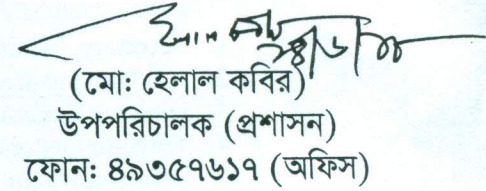 (মো: হেলাল কবির)
উপপরিচালক (প্রশাসন)
ফোন: ৪৯৩৫৭৬১৭ (অফিস)